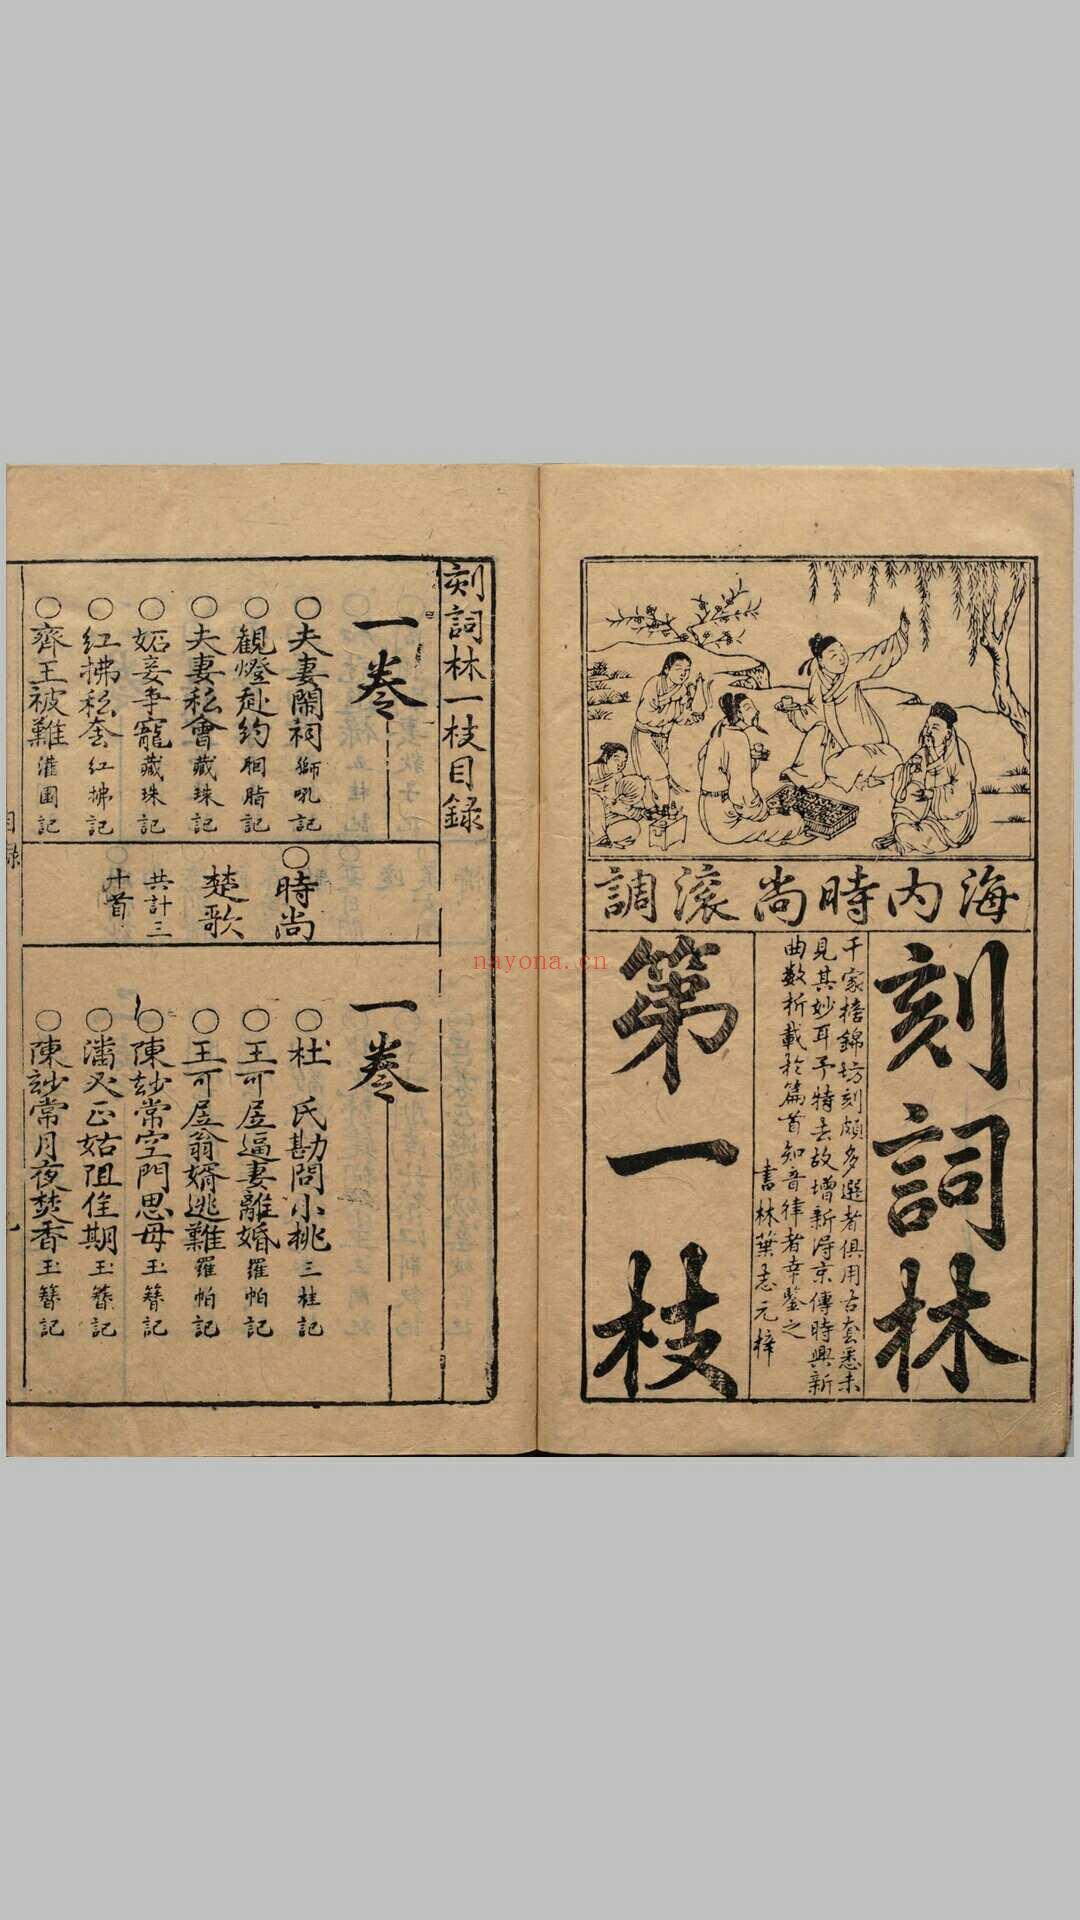 海内時尚滚調
刻詞林
千家摛錦坊刻頗多選者俱用古套悉未
見其妙耳予特去故增新得京傳時興新
曲數折載於篇首知音律者幸鑒之
書林葉志元梓
第一枝
刻詞林一枝目録
一卷
○夫妻鬧祠 獅吼記
○觀燈赴約 胭脂記
○夫妻私會 藏珠記
○妬妾争寵 藏珠記
○紅拂私奔 紅拂記
○齊王被難 灌園記
○時尚
楚歌
共計三
十首
一卷
○杜氏勘問小桃 三桂記
○王可居逼妻離婚 羅帕記
○王可居翁婿逃難 羅帕記
○陳玅常空門思母 玉簪記
○潘必正姑阻佳期 玉簪記
○陳玅常月夜焚香 玉簪記
目録
nayona.cn